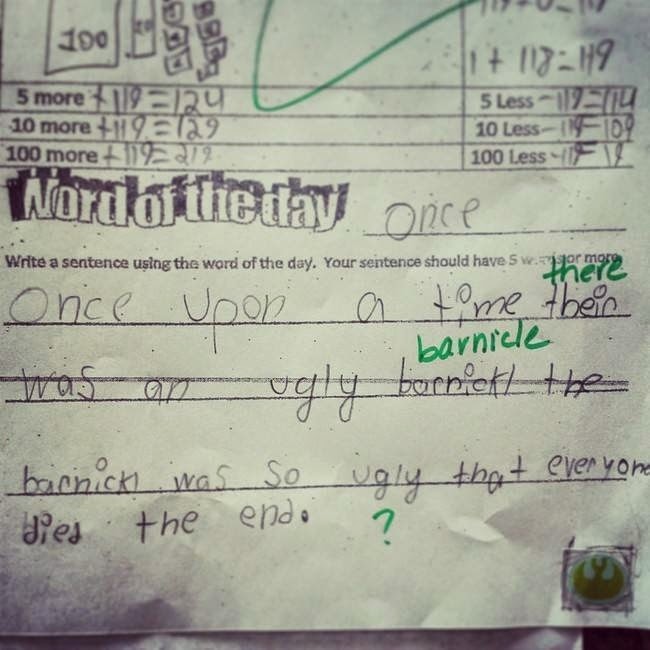 100
1 + 118=119
5 more +119=124
5 Less -119=114
10 more +119=129
10 Less -119=109
100 more +119=219
100 Less -119=19
Word of the day Once
Write a sentence using the word of the day. Your sentence should have 5 or more
there
Once upon a time their
barnicle
was an ugly barnickl the
barnickl was so ugly that everyone
died the end. ?